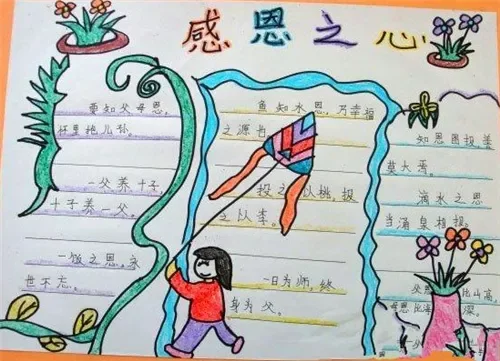 感恩之心
要知父母恩，
怀里抱儿孙。
一父养十子，
十子养一父。
一饭之恩，永
世不忘。
鱼知水恩，乃幸福
之源也
投之以桃，报
之以李。
一日为师，终
身为父。
知恩图报善
莫大焉。
滴水之恩
当涌泉相报。
父恩比山高，
母恩比海深。